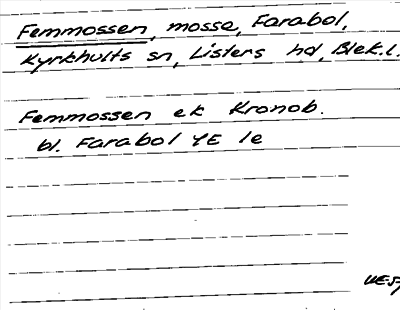 Femmossen, mosse, Farabol,
Kyrkhults sn, Listers hd, Blek.l.
Femmossen ek Kronob.
bl. Farabol YE 1e